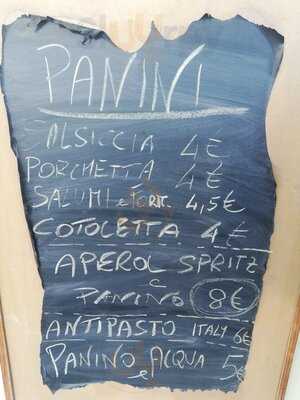 PANINI
SALSICCIA 4€
PORCHETTA 4€
SALUMI e FORM. 4,5€
COTOLETTA 4€
APEROL SPRITZ
e
PANINO 8€
ANTIPASTO ITALY 6€
PANINO e ACQUA 5€